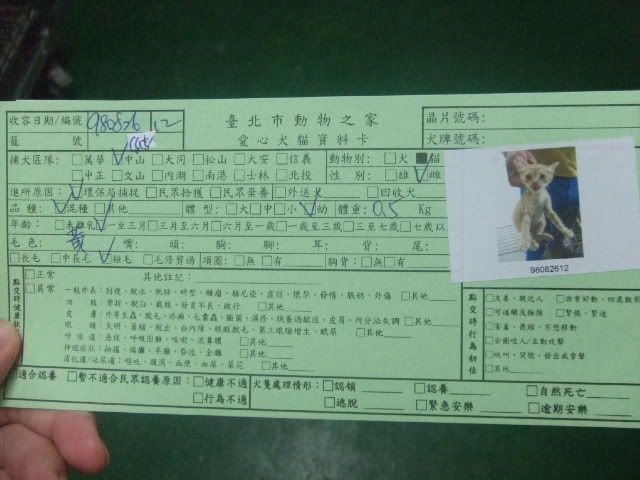 收容日期/編號 980826 12 臺北市動物之家 晶片號碼:
籠號 cat 愛心犬貓資料卡 犬牌號碼:
捕犬區隊: □萬華 ✓中山 □大同 □松山 □大安 □信義 動物別: □犬 ■貓
□中正 □文山 □內湖 □南港 □士林 □北投 性別: □雄 ✓雌
進所原因: ✓環保局捕捉 □民眾拾獲 □民眾棄養 □外送犬 □回收犬
品種: ✓混種 □其他 體型: □大 □中 □小 ✓幼 體重: 0.5 Kg
年齡: □未離乳 ✓一至三月 □三至六月 □六月至一歲 □一歲至三歲 □三至七歲 □七歲以
毛色: 黃 嘴: 頭: 胸: 腳: 耳: 背: 尾:
□長毛 □中長毛 ✓短毛 □毛修剪過 項圈: □無 □有 胸背: □無 □有
98082612
點交時健康狀 □正常 其他註記:
□異常 一般外表: 削瘦、脫水、肥胖、畸型、腫瘤、赫尼亞、虛弱、懷孕、發情、脹奶、外傷 □其他
四肢: 骨折、脫臼、截肢、發育不良、跛行 □其他
皮膚: 外寄生蟲、脫毛、疥癬、毛囊蟲、黴菌、濕疹、跳蚤過敏症、皮屑、內分泌失調 □其他
眼睛: 失明、萎縮、脫出、白內障、眼瞼脫毛、第三眼瞼增生、眼屎 □其他
呼吸道: 急促、呼吸困難、咳嗽、流鼻膿 □其他
神經症狀: 抽搐、偏癱、半癱、昏迷、全癱 □其他
消化道/泌尿道: 嘔吐、腹瀉、血便、血尿、菜花 □其他
點交時行為初估
□友善、親近人 □非常好動、四處觀察
□可碰觸及抽摸 □緊張、緊迫
□害羞、畏縮、不想移動
□企圖咬人/主動攻擊
□吠叫、哭號、發出威脅聲
□其他
□適合認養 □暫不適合民眾認養原因: □健康不適 犬隻處理情形: □認領 □認養 □自然死亡
□行為不適 □逃脫 □緊急安樂 □逾期安樂